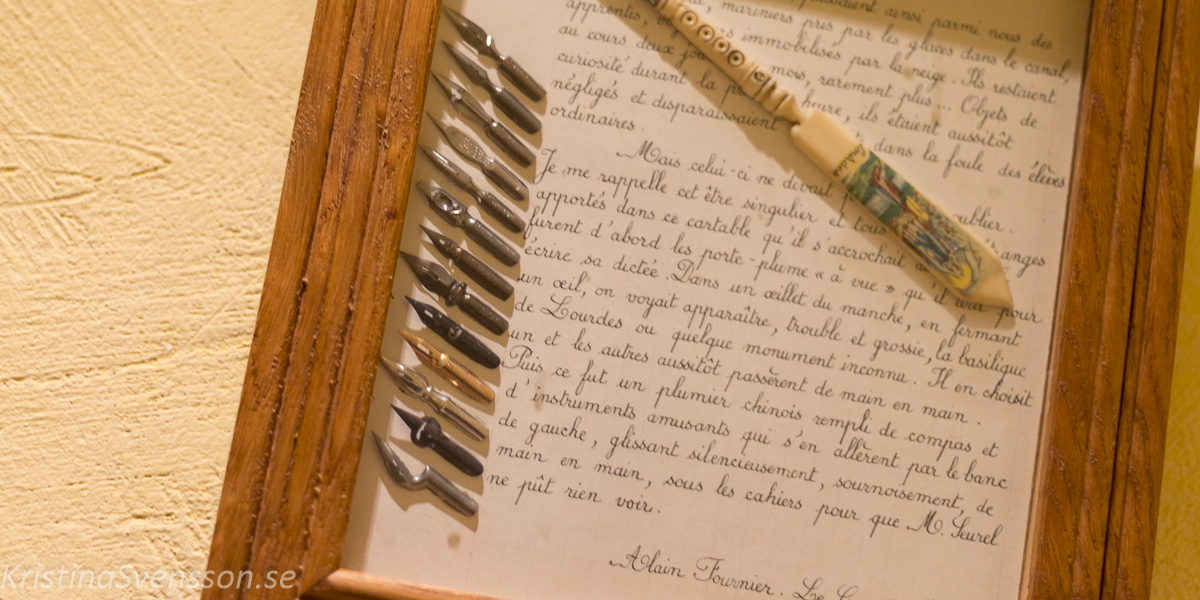 ainsi parmi nous des
mariniers pris par les glaces dans le canal,
apprentis, immobilisés par la neige. Ils restaient
au cours deux mois, rarement plus... Objets de
curiosité durant la heure, ils étaient aussitôt
négligés et disparaissaient dans la foule des élèves
ordinaires.
Mais celui-ci ne devait oublier.
Je me rappelle cet être singulier et tous
apportés dans ce cartable qu'il s'accrochait
furent d'abord les porte-plume « à vue » qu'il tira pour
écrire sa dictée. Dans un œillet du manche, en fermant
un œil, on voyait apparaître, trouble et grossie, la basilique
de Lourdes ou quelque monument inconnu. Il en choisit
un et les autres aussitôt passèrent de main en main.
Puis ce fut un plumier chinois rempli de compas et
d'instruments amusants qui s'en allèrent par le banc
de gauche, glissant silencieusement, sournoisement, de
main en main, sous les cahiers pour que M. Seurel
ne pût rien voir.
Alain Fournier. Le
Lourdes
KristinaSvensson.se